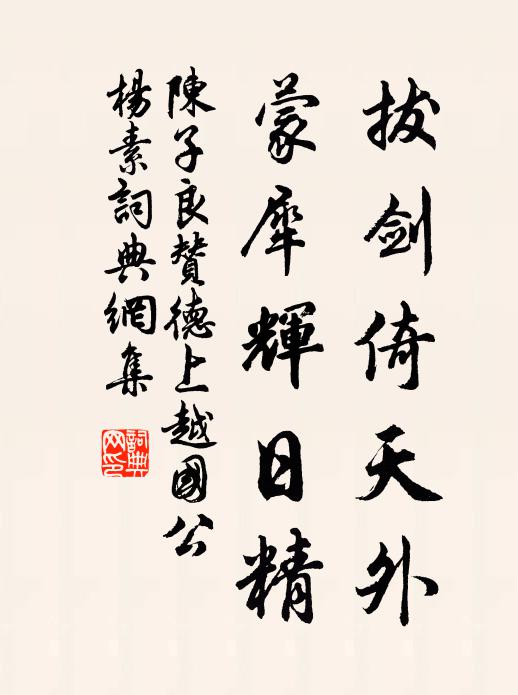 拔劍倚天外
蒙犀輝日精
陳子良贊德上越國公
楊素詞典網集
詞典网印